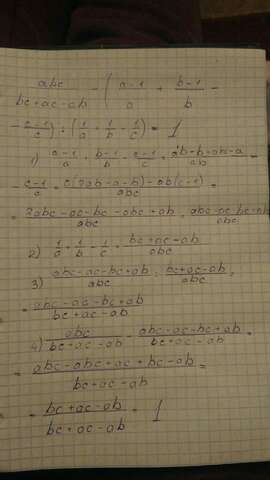 abc/(bc+ac-ab) - ( (a-1)/a + (b-1)/b -
- (c-1)/c ) : ( 1/a + 1/b - 1/c ) = 1
1) (a-1)/a + (b-1)/b - (c-1)/c = (ab-b+ab-a)/ab -
- (c-1)/c = (c(2ab-a-b)-ab(c-1))/abc =
= (2abc-ac-bc-abc+ab)/abc = (abc-ac-bc+ab)/abc
2) 1/a + 1/b - 1/c = (bc+ac-ab)/abc
3) (abc-ac-bc+ab)/abc : (bc+ac-ab)/abc =
= (abc-ac-bc+ab)/(bc+ac-ab)
4) abc/(bc+ac-ab) - (abc-ac-bc+ab)/(bc+ac-ab) =
= (abc-abc+ac+bc-ab)/(bc+ac-ab) =
= (bc+ac-ab)/(bc+ac-ab) = 1